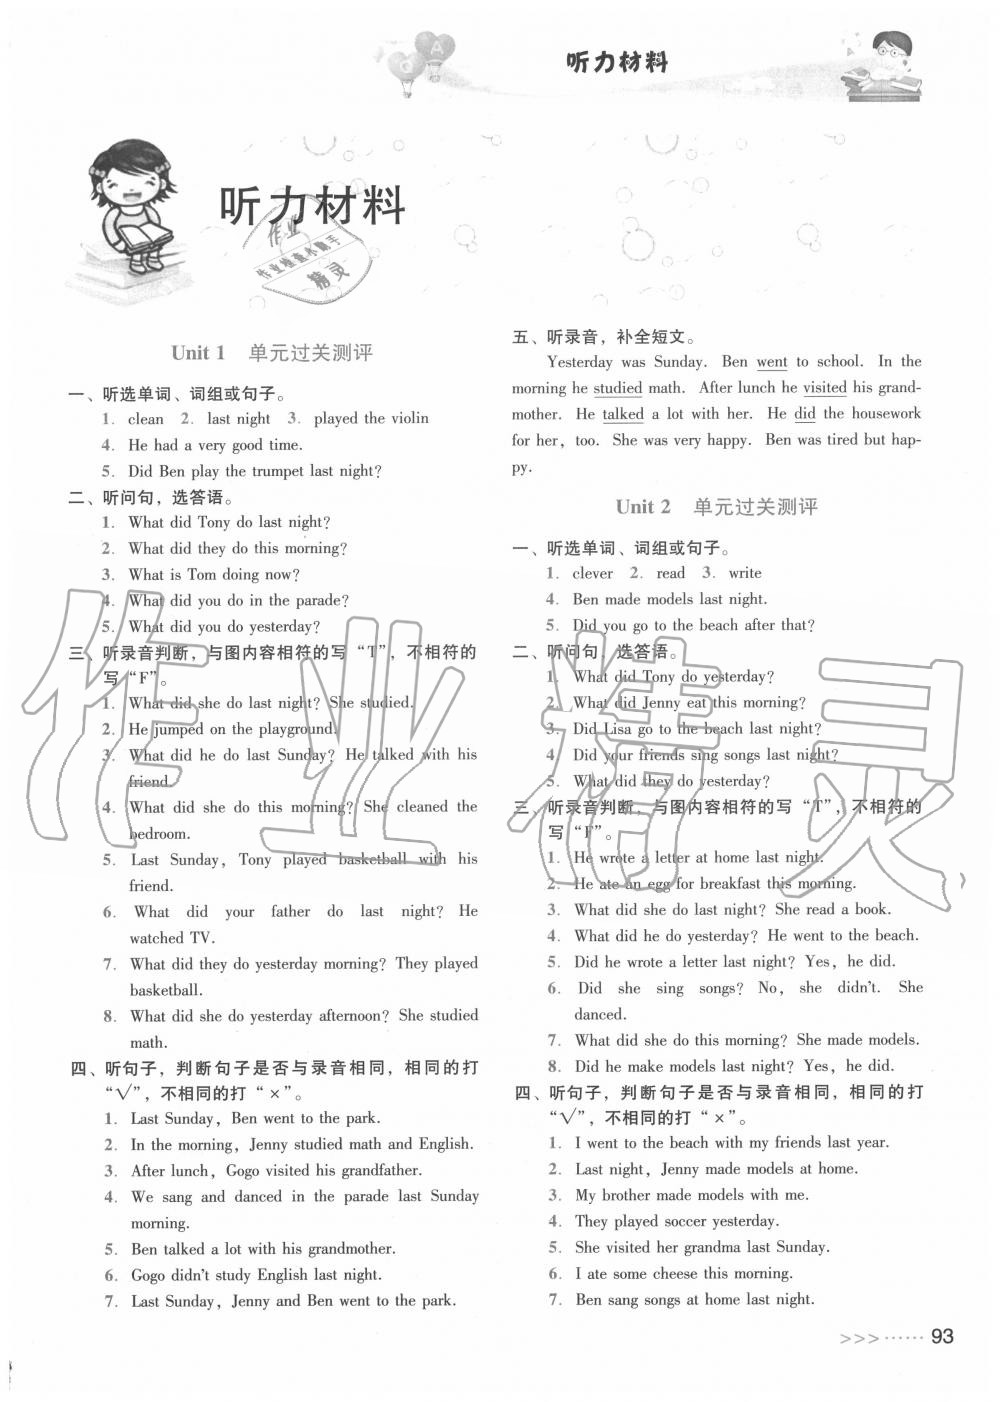 听力材料
听力材料
Unit 1 单元过关测评
一、听选单词、词组或句子。
1. clean 2. last night 3. played the violin
4. He had a very good time.
5. Did Ben play the trumpet last night?
二、听问句，选答语。
1. What did Tony do last night?
2. What did they do this morning?
3. What is Tom doing now?
4. What did you do in the parade?
5. What did you do yesterday?
三、听录音判断，与图内容相符的写“T”，不相符的
写“F”。
1. What did she do last night? She studied.
2. He jumped on the playground.
3. What did he do last Sunday? He talked with his
friend.
4. What did she do this morning? She cleaned the
bedroom.
5. Last Sunday, Tony played basketball with his
friend.
6. What did your father do last night? He
watched TV.
7. What did they do yesterday morning? They played
basketball.
8. What did she do yesterday afternoon? She studied
math.
四、听句子，判断句子是否与录音相同，相同的打
“√”，不相同的打“×”。
1. Last Sunday, Ben went to the park.
2. In the morning, Jenny studied math and English.
3. After lunch, Gogo visited his grandfather.
4. We sang and danced in the parade last Sunday
morning.
5. Ben talked a lot with his grandmother.
6. Gogo didn't study English last night.
7. Last Sunday, Jenny and Ben went to the park.
五、听录音，补全短文。
Yesterday was Sunday. Ben went to school. In the
morning he studied math. After lunch he visited his grand-
mother. He talked a lot with her. He did the housework
for her, too. She was very happy. Ben was tired but hap-
py.
Unit 2 单元过关测评
一、听选单词、词组或句子。
1. clever 2. read 3. write
4. Ben made models last night.
5. Did you go to the beach after that?
二、听问句，选答语。
1. What did Tony do yesterday?
2. What did Jenny eat this morning?
3. Did Lisa go to the beach last night?
4. Did your friends sing songs last night?
5. What did they do yesterday?
三、听录音判断，与图内容相符的写“T”，不相符的
写“F”。
1. He wrote a letter at home last night.
2. He ate an egg for breakfast this morning.
3. What did she do last night? She read a book.
4. What did he do yesterday? He went to the beach.
5. Did he wrote a letter last night? Yes, he did.
6. Did she sing songs? No, she didn't. She
danced.
7. What did she do this morning? She made models.
8. Did he make models last night? Yes, he did.
四、听句子，判断句子是否与录音相同，相同的打
“√”，不相同的打“×”。
1. I went to the beach with my friends last year.
2. Last night, Jenny made models at home.
3. My brother made models with me.
4. They played soccer yesterday.
5. She visited her grandma last Sunday.
6. I ate some cheese this morning.
7. Ben sang songs at home last night.
>>>······ 93
作业精灵